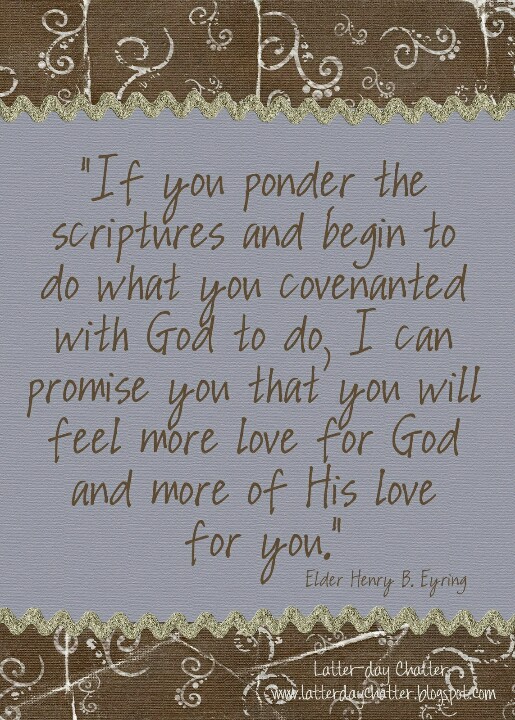 "If you ponder the
scriptures and begin to
do what you covenanted
with God to do, I can
promise you that you will
feel more love for God
and more of His love
for you."
Elder Henry B. Eyring
Latter-day Chatter
www.latterdaychatter.blogspot.com